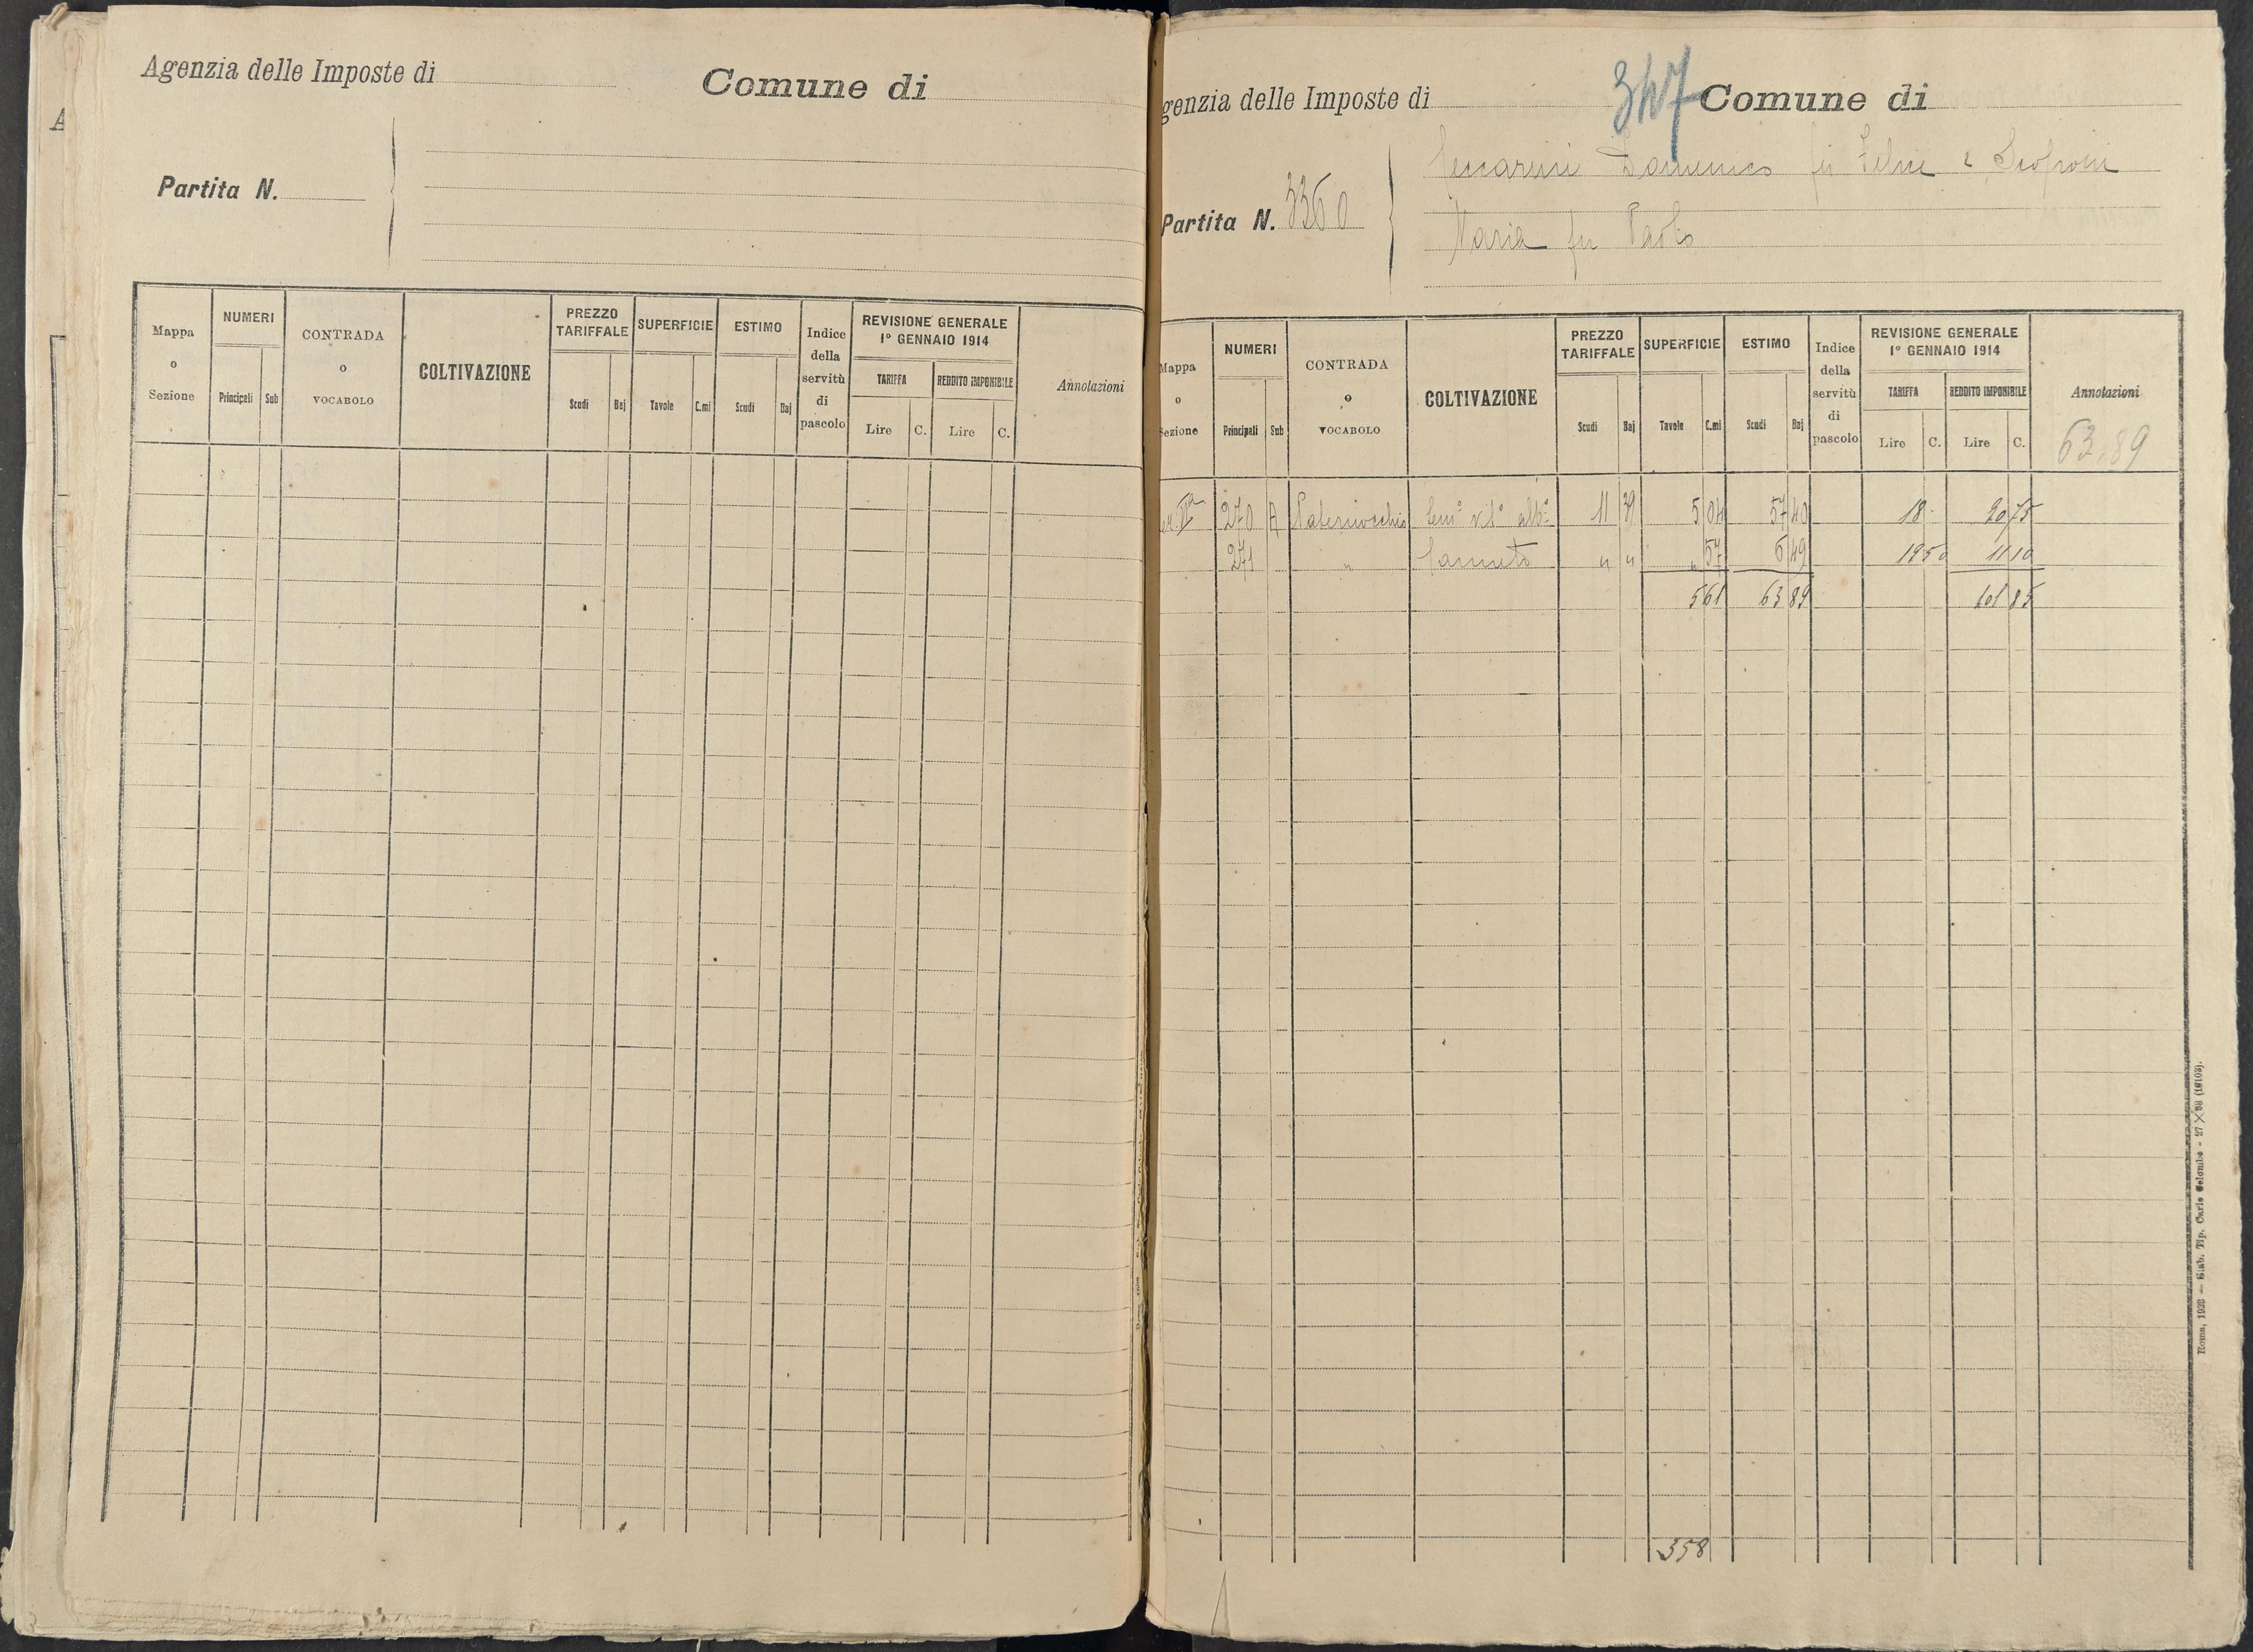 Agenzia delle Imposte di
Comune di
Partita N.
Mappa o Sezione
NUMERI
Principali Sub
CONTRADA o VOCABOLO
COLTIVAZIONE
PREZZO TARIFFALE
Scudi Baj
SUPERFICIE
Tavole C.mi
ESTIMO
Scudi Baj
Indice della servitù di pascolo
REVISIONE GENERALE
1º GENNAIO 1914
TARIFFA REDDITO IMPONIBILE
Lire C. Lire C.
Annotazioni
genzia delle Imposte di
347
Comune di
Partita N. 3360
Domenico fu Felice e
Maria fu Paolo
Mappa o Sezione
NUMERI
Principali Sub
CONTRADA o VOCABOLO
COLTIVAZIONE
PREZZO TARIFFALE
Scudi Baj
SUPERFICIE
Tavole C.mi
ESTIMO
Scudi Baj
Indice della servitù di pascolo
REVISIONE GENERALE
1º GENNAIO 1914
TARIFFA REDDITO IMPONIBILE
Lire C. Lire C.
Annotazioni
63.89
270 A Sem° vit° alb° 11 39 5 04 57 40 18 - 90 75
271 " Canneto " " " 57 6 49 19 50 11 10
5 61 63 89 101 85
358
Roma, 1928 — Stab. Tip. Carlo Colombo - 27 X 28 (15103).